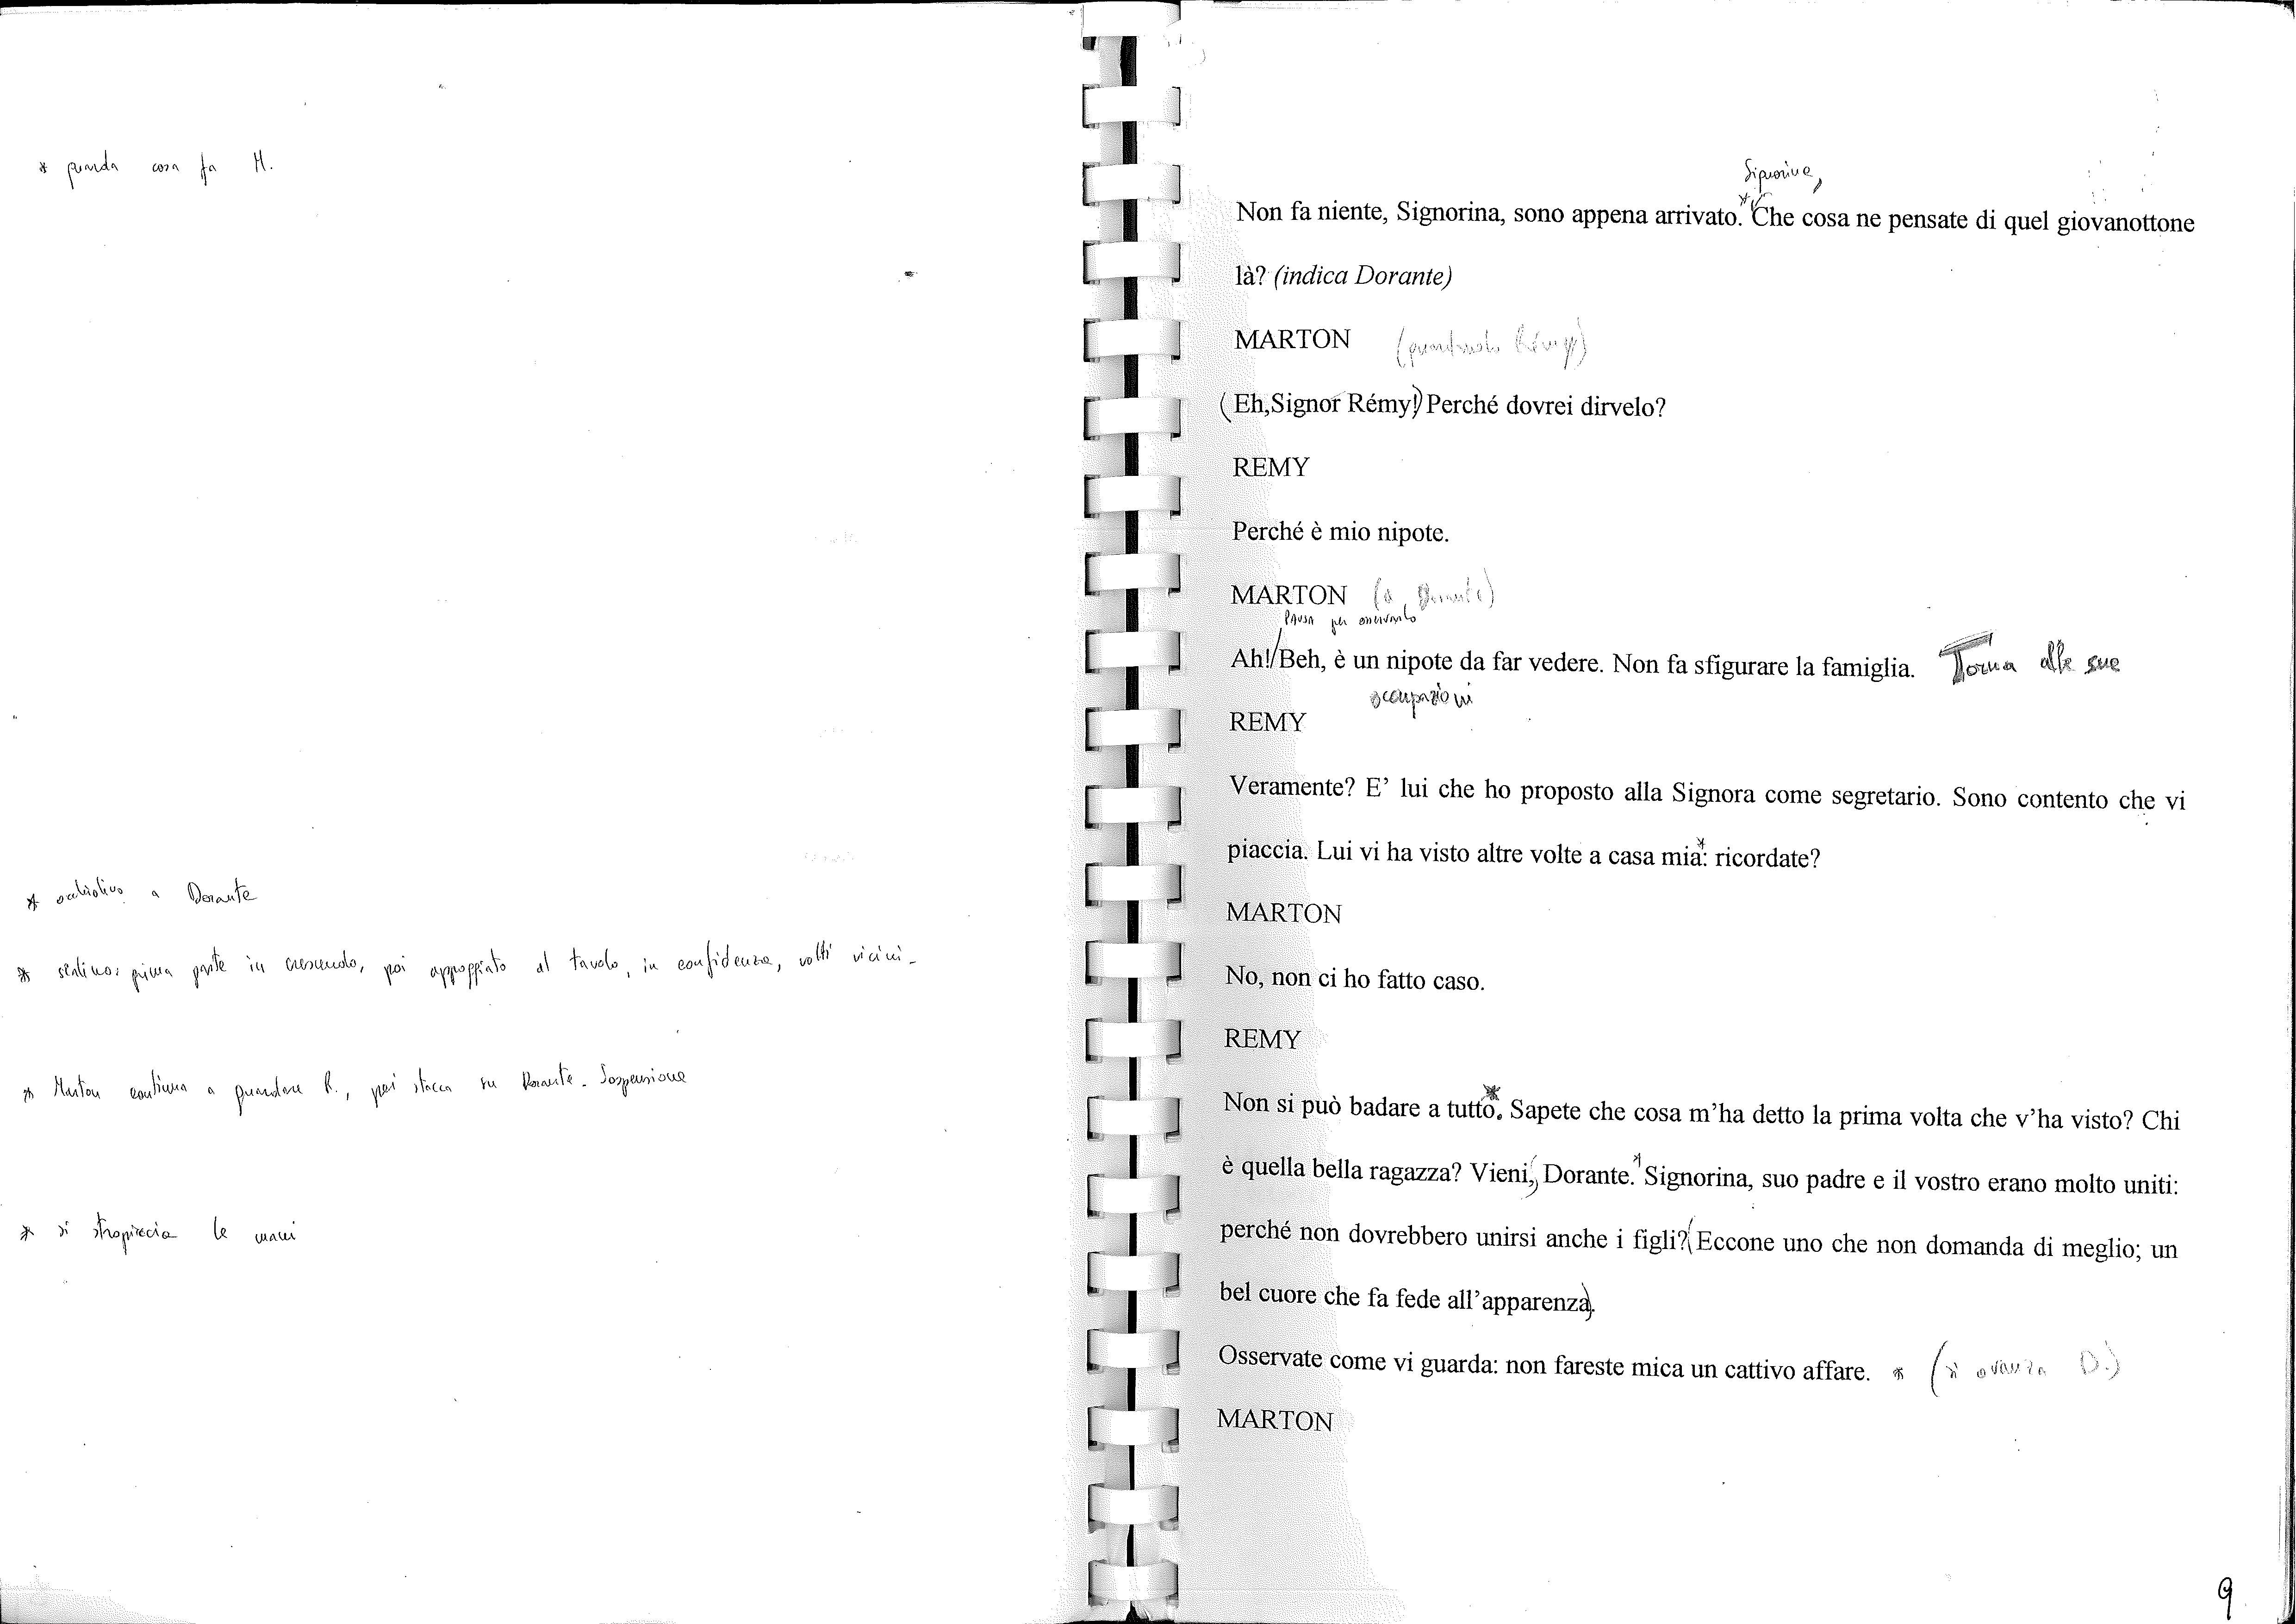 * guarda cosa fa M.
* occhiolino a Dorante
* scalino: prima parte in crescendo, poi appoggiato al tavolo, in confidenza, volti vicini -
* Marton continua a guardare R., poi stacca su Dorante - Sospensione
* si stropiccia le mani
Signorina,
Non fa niente, Signorina, sono appena arrivato.* Che cosa ne pensate di quel giovanottone
là? (indica Dorante)
MARTON (guardando Rémy)
(Eh,Signor Rémy!) Perché dovrei dirvelo?
REMY
Perché è mio nipote.
MARTON (a Dorante)
PAUSA per osservarlo
Ah!/Beh, è un nipote da far vedere. Non fa sfigurare la famiglia. Torna alle sue
occupazioni
REMY
Veramente? E’ lui che ho proposto alla Signora come segretario. Sono contento che vi
piaccia. Lui vi ha visto altre volte a casa mia*: ricordate?
MARTON
No, non ci ho fatto caso.
REMY
Non si può badare a tutto*. Sapete che cosa m’ha detto la prima volta che v’ha visto? Chi
è quella bella ragazza? Vieni, Dorante.* Signorina, suo padre e il vostro erano molto uniti:
perché non dovrebbero unirsi anche i figli? (Eccone uno che non domanda di meglio; un
bel cuore che fa fede all’apparenza).
Osservate come vi guarda: non fareste mica un cattivo affare. * (si avanza D.)
MARTON
9